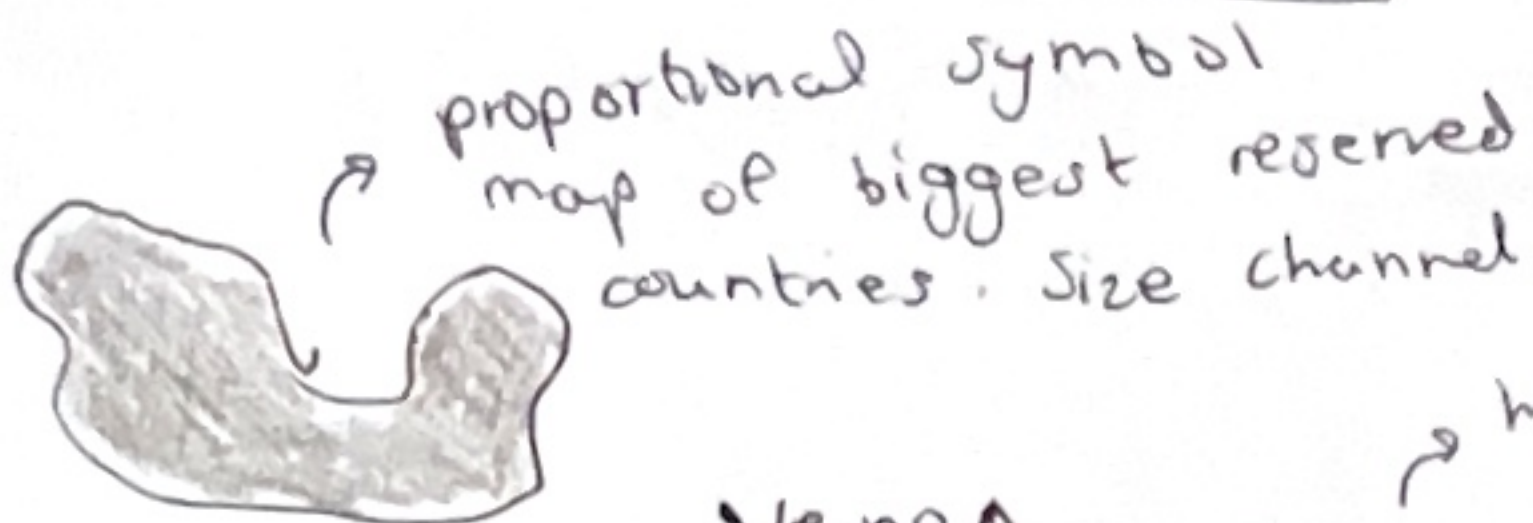 proportional symbol
map of biggest reserved
countries. Size channel